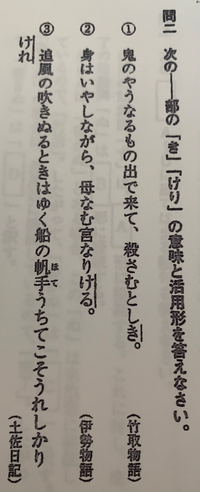 問二 次の――部の「き」「けり」の意味と活用形を答えなさい。
① 鬼のやうなるもの出で来て、殺さむとしき。 (竹取物語)
② 身はいやしながら、母なむ宮なりける。 (伊勢物語)
③ 追風の吹きぬるときはゆく船の帆手うちてこそうれしかり
ほて
けれ (土佐日記)